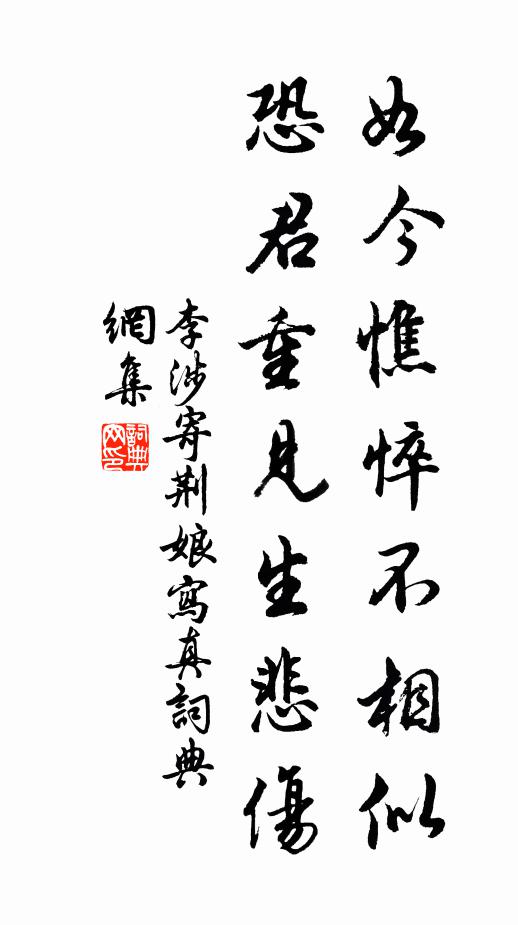 如今憔悴不相似
恐君重見生悲傷
李涉寄荆娘寫真詞典
網集
詞典網印